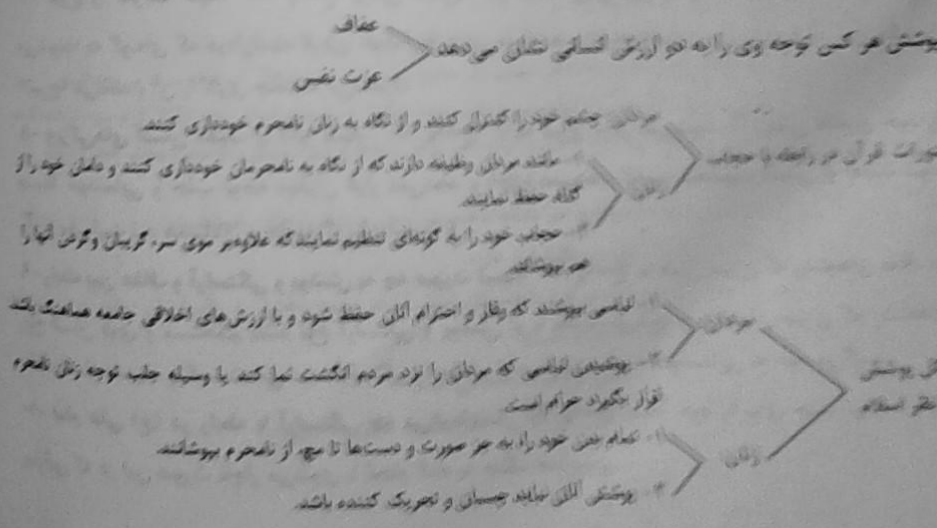 پوشش هر کس توجه وی را به دو ارزش انسانی نشان می‌دهد
عفاف
عزت نفس
قرآن در رابطه با حجاب
مردان: چشم خود را کنترل کنند و از نگاه به زنان نامحرم خودداری کنند.
زنان
مانند مردان وظیفه دارند که از نگاه به نامحرمان خودداری کنند و دامان خود را از
گناه حفظ نمایند.
حجاب خود را به گونه‌ای تنظیم نمایند که علاوه‌بر موی سر، گریبان و گردن آنها را
هم بپوشاند.
پوشش
نظر اسلام
مردان
۱ لباسی بپوشند که وقار و احترام آنان حفظ شود و با ارزش‌های اخلاقی جامعه هماهنگ باشد
۲ پوشیدن لباسی که مردان را نزد مردم انگشت نما کند یا وسیله جلب توجه زنان نامحرم
قرار بگیرد حرام است.
زنان
۱ تمام بدن خود را، به جز صورت و دست‌ها تا مچ، از نامحرم بپوشانند.
۲ پوشش آنان نباید چسبان و تحریک کننده باشد.